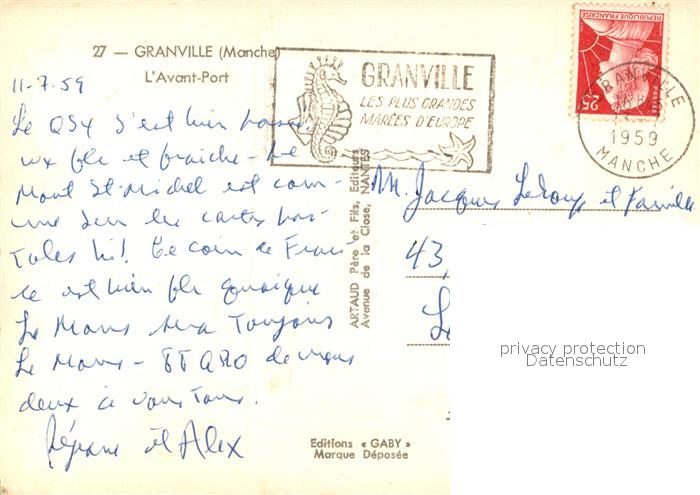 27 — GRANVILLE (Manche)
L'Avant-Port
GRANVILLE
LES PLUS GRANDES
MARÉES D'EUROPE
REPUBLIQUE FRANÇAISE
POSTES
25
GRANVILLE
1959
MANCHE
11-7.59
Le QSY s'est bien passé
wx fb et fraiche - Le
Mont St-Michel est com-
me sur les cartes pos-
tales hi! Ce coin de Fran-
ce est bien fb quoique
Le Mans sera toujours
Le Mans - 88 QRO de nous
deux à vous tous.
Réjane et Alex
ARTAUD Père et Fils, Editeurs
Avenue de la Close, NANTES
M. Jacques Leloup et Famille
43,
Editions « GABY »
Marque Déposée
privacy protection
Datenschutz